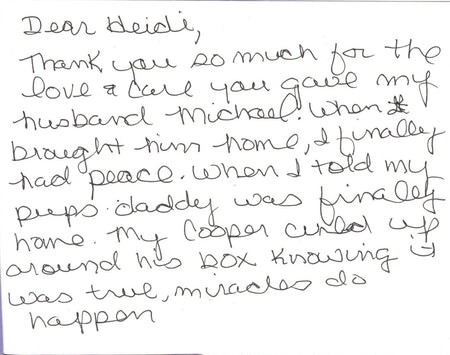 Dear Heidi,
Thank you so much for the
love & care you gave my
husband Michael. When I
brought him home, I finally
had peace. When I told my
pups daddy was finally
home. My Cooper curled up
around his box knowing it
was true, miracles do
happen